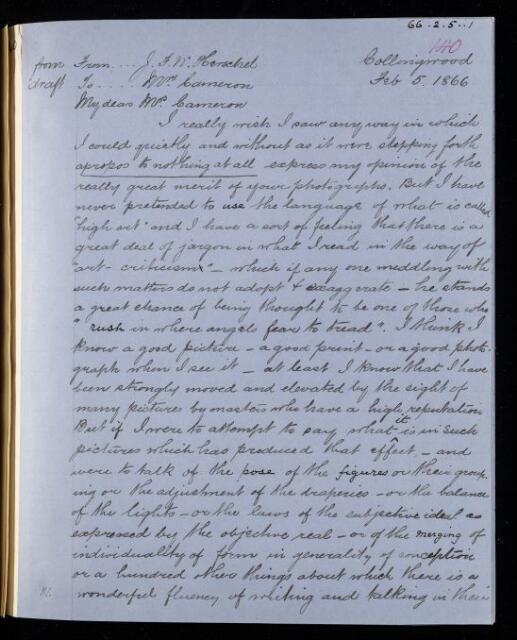 66-2-5-1
140
from draft
From ... J. F. W. Herschel
Collingwood
To .... Mrs. Cameron
Feb 5. 1866
My dear Mrs. Cameron
I really wish I saw any way in which
I could quietly and without as it were stepping forth
apropos to nothing at all express my opinion of the
really great merit of your photographs. But I have
never pretended to use the language of what is called
"high art" and I have a sort of feeling that there is a
great deal of jargon in what I read in the way of
"art-criticism" - which if any one meddling with
such matters do not adopt & exaggerate - he stands
a great chance of being thought to be one of those who
"rush in where angels fear to tread". I think I
know a good picture - a good print - or a good photo-
graph when I see it - at least I know that I have
been strongly moved and elevated by the sight of
many pictures by masters who have a high reputation
But if I were to attempt to say what it is in such
pictures which has produced that effect, - and
were to talk of the pose of the figures or their group-
ing or the adjustment of the draperies - or the balance
of the lights - or the laws of the subjective ideal as
expressed by the objective real - or of the merging of
individuality of form in generality of conception
or a hundred other things about which there is a
wonderful fluency of writing and talking in their